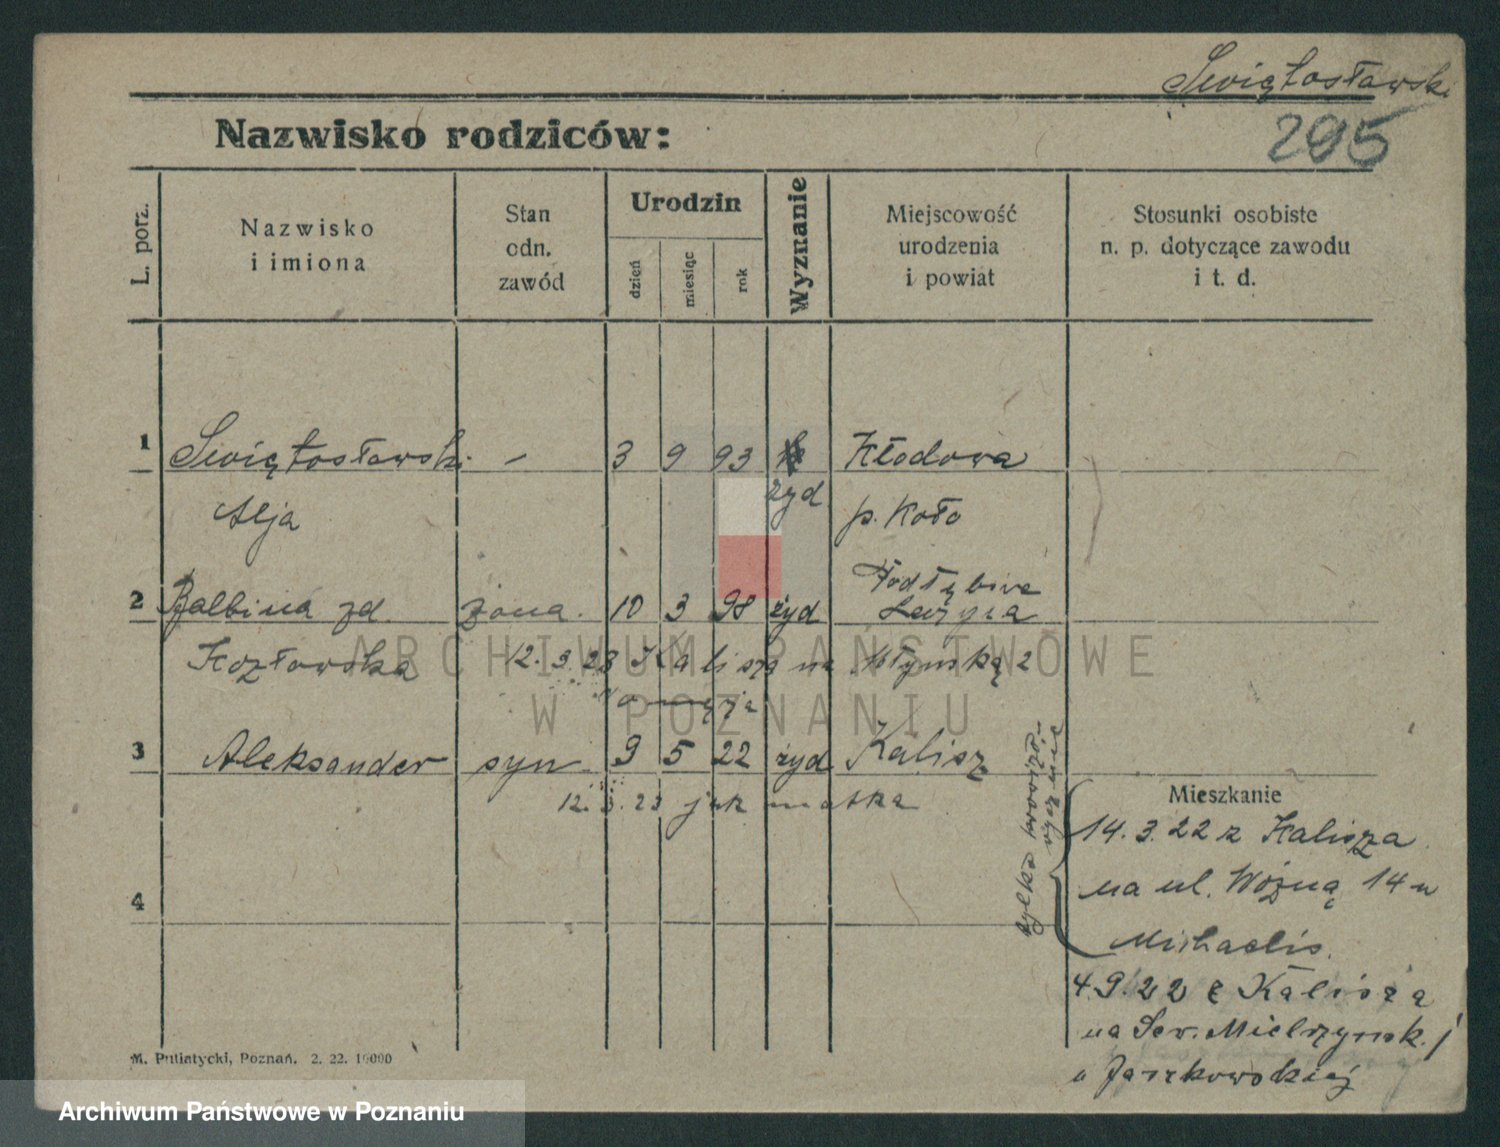 Świętosławski
295
Nazwisko rodziców:
L. porz.
Nazwisko
i imiona
Stan
odn.
zawód
Urodzin
dzień
miesiąc
rok
Wyznanie
Miejscowość
urodzenia
i powiat
Stosunki osobiste
n. p. dotyczące zawodu
i t. d.
1 Świętosławski - 3 9 93 Kłodowa
Alja żyd p. Koło
2 Balbina zd. żona. 10 3 98 żyd
Kozłowska 12. 3. 23 Kalisza na Młyńską 2
3 Aleksander syn 9 5 22 żyd Kalisz
12. 3. 23 jak matka
4
tylko
Mieszkanie
14. 3. 22 z Kalisza
na ul. Woźną 14 u
Michaelis.
4. 9. 22 z Kalisza
na Sew. Mielżyńsk. 1
u Jaszkowskiej
M. Putiatycki, Poznań. 2. 22. 10000
ARCHIWUM PAŃSTWOWE
W POZNANIU
Archiwum Państwowe w Poznaniu